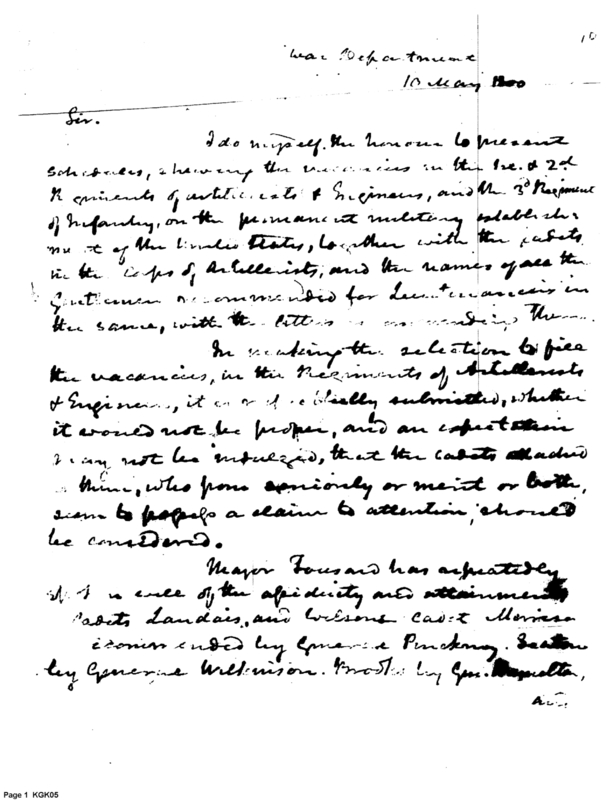 10
War Department
10 May 1800
Sir.
I do myself the honour to present
schedules, shewing the vacancies in the 1st. & 2d
Regiments of artillerists & Engineers, and the 3d Regiment
of Infantry, on the permanent military establish-
ment of the United States, together with the cadets
in the corps of Artillerists, and the names of all the
Gentlemen recommended for Lieutenancies in
the same, with the letters recommending them.
In making the selection to fill
the vacancies, in the Regiments of Artillerists
& Engineers, it is respectfully submitted, whether
it would not be proper, and an expectation
may not be indulged, that the cadets attached
to them, who from seniority or merit or both,
seem to possess a claim to attention, should
be considered.
Major Tousard has repeatedly
spoken well of the assiduity and attainments
Cadets Landais, and Wilson. Cadet
recommended by General Pinckney.
by General Wilkinson. Brooks by Gen. Hamilton,
and
Page 1 KGK05